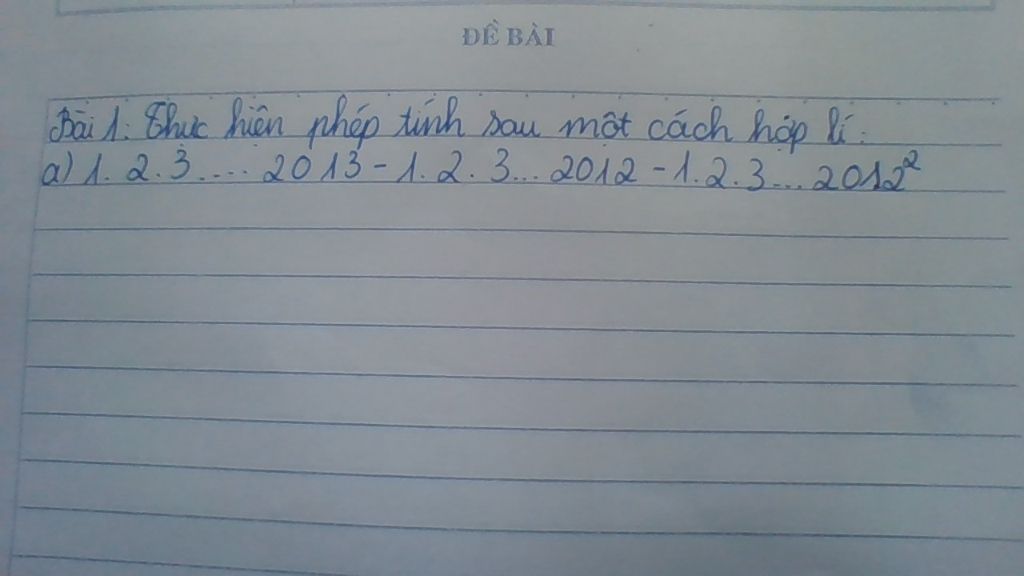 ĐỀ BÀI
Bài 1: Thực hiện phép tính sau một cách hợp lí:
a) 1. 2. 3 .... 2013 - 1. 2. 3... 2012 - 1. 2. 3... 2012²